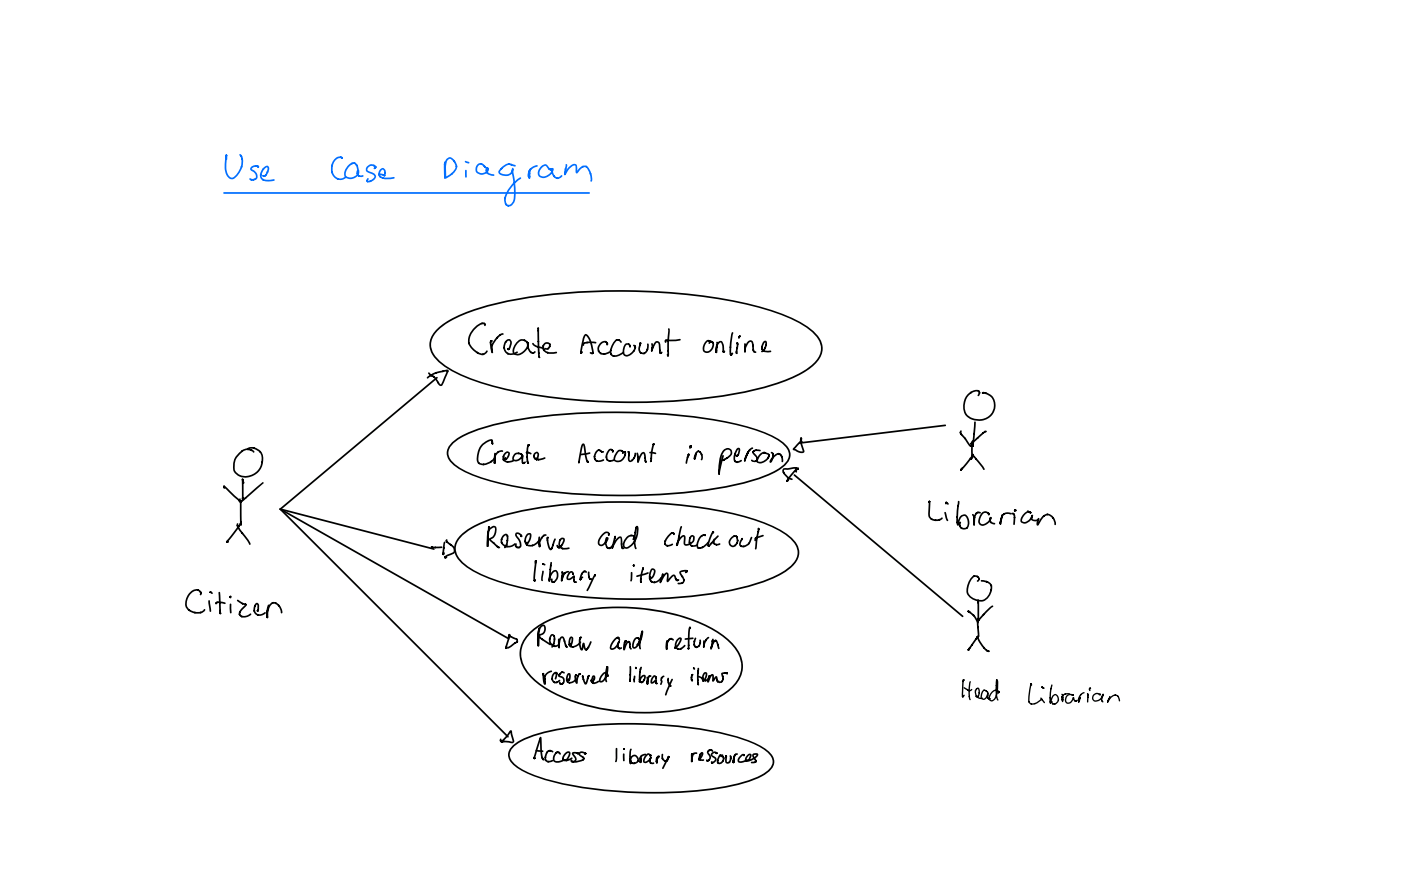 Use Case Diagram
Create Account online
Create Account in person
Reserve and check out
library items
Renew and return
reserved library items
Access library ressources
Citizen
Librarian
Head Librarian